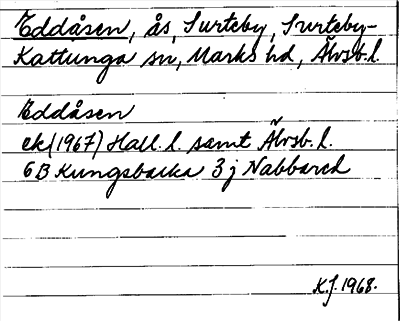 Eddåsen, ås, Surteby, Surteby-
Kattunga sn, Marks hd, Älvsb. l.
Eddåsen
ek (1967) Hall. l. samt Älvsb. l.
6B Kungsbacka 3j Nabbared
K.J. 1968.